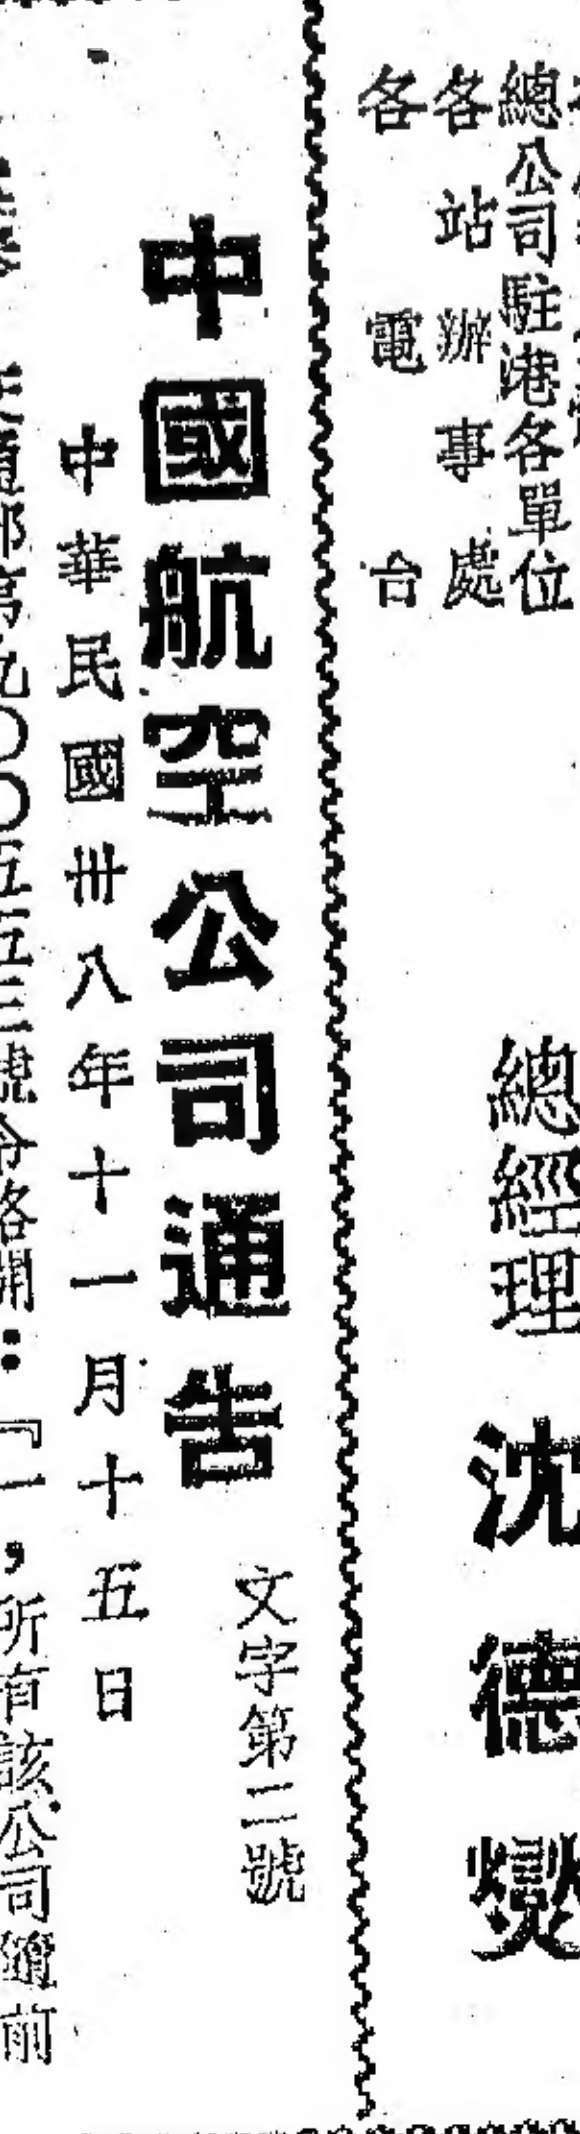 總公司駐港各單位
各站辦事處
各電台
總經理 沈德燮
中國航空公司通告 文字第二號
中華民國卅八年十一月十五日
九〇〇五五三號令略開：『一，所有該公司